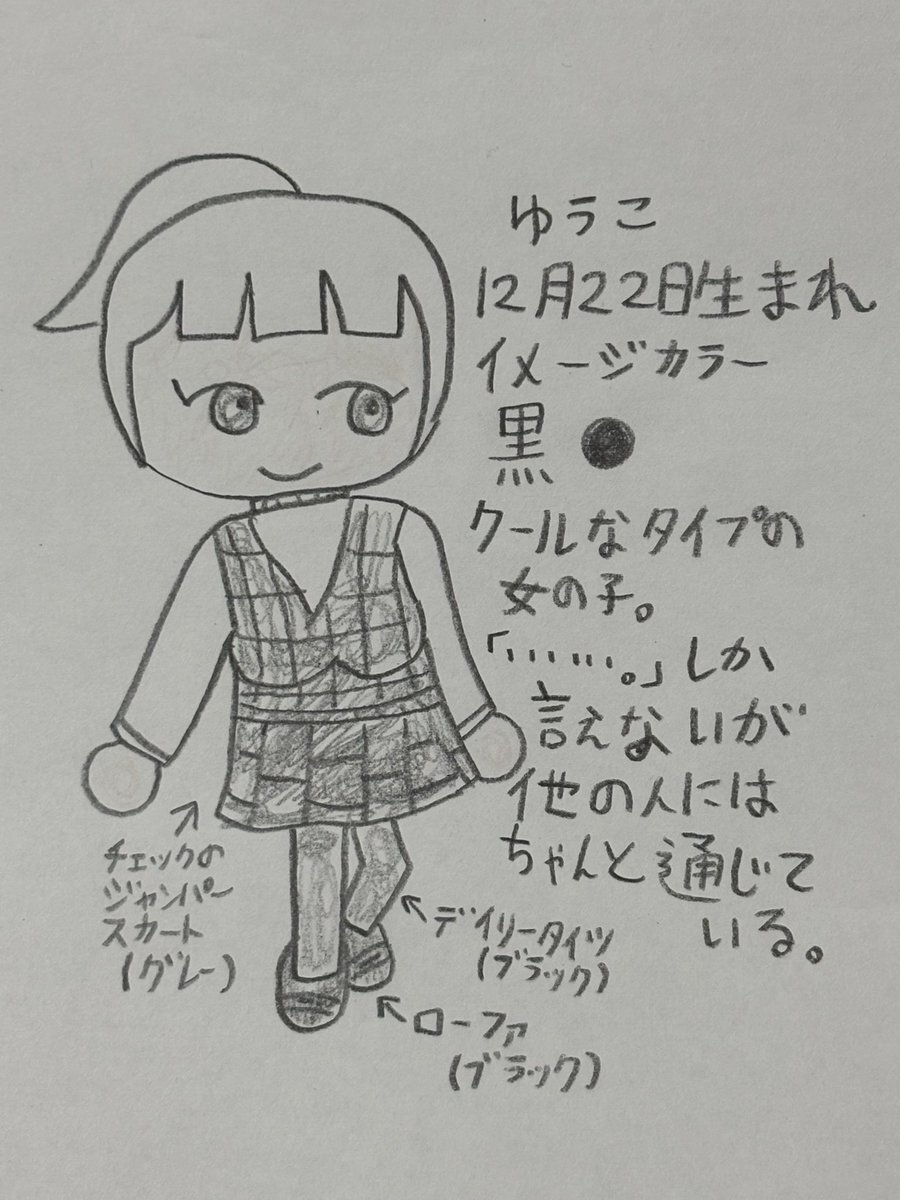 ゆうこ
12月22日生まれ
イメージカラー
黒
クールなタイプの
女の子。
「……。」しか
言えないが
他の人には
ちゃんと通じて
いる。
チェックの
ジャンパー
スカート
(グレー)
デイリータイツ
(ブラック)
ローファ
(ブラック)